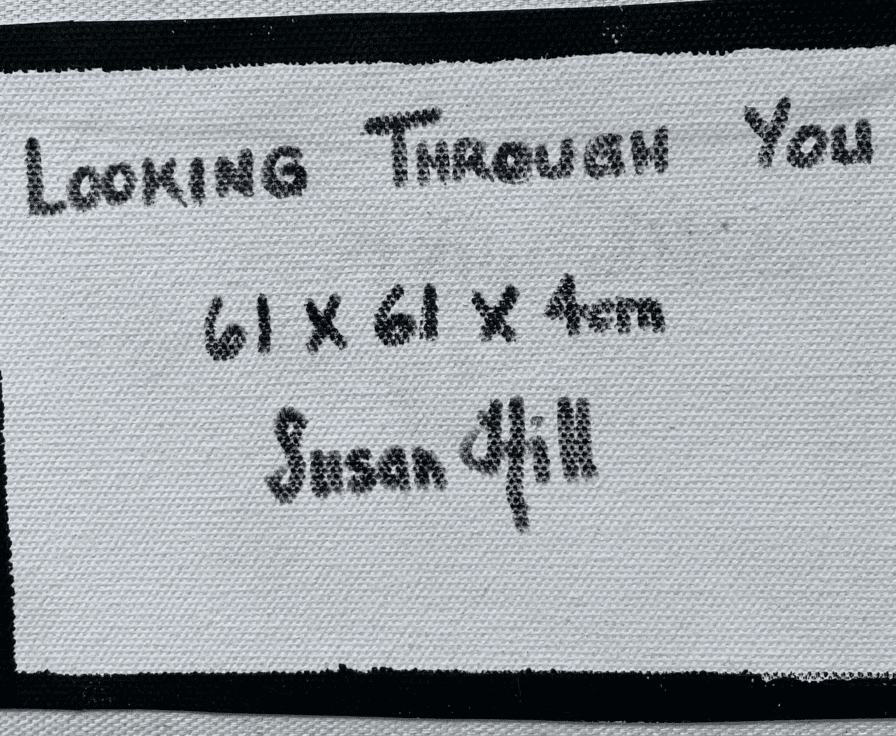 LOOKING THROUGH YOU
61 x 61 x 4cm
Susan Hill